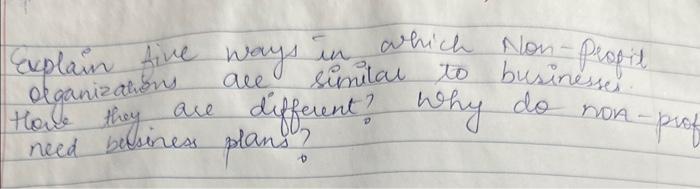 Explain five ways in which Non-Profit
organizations are similar to businesses.
How they are different? Why do non-prof
need business plans?